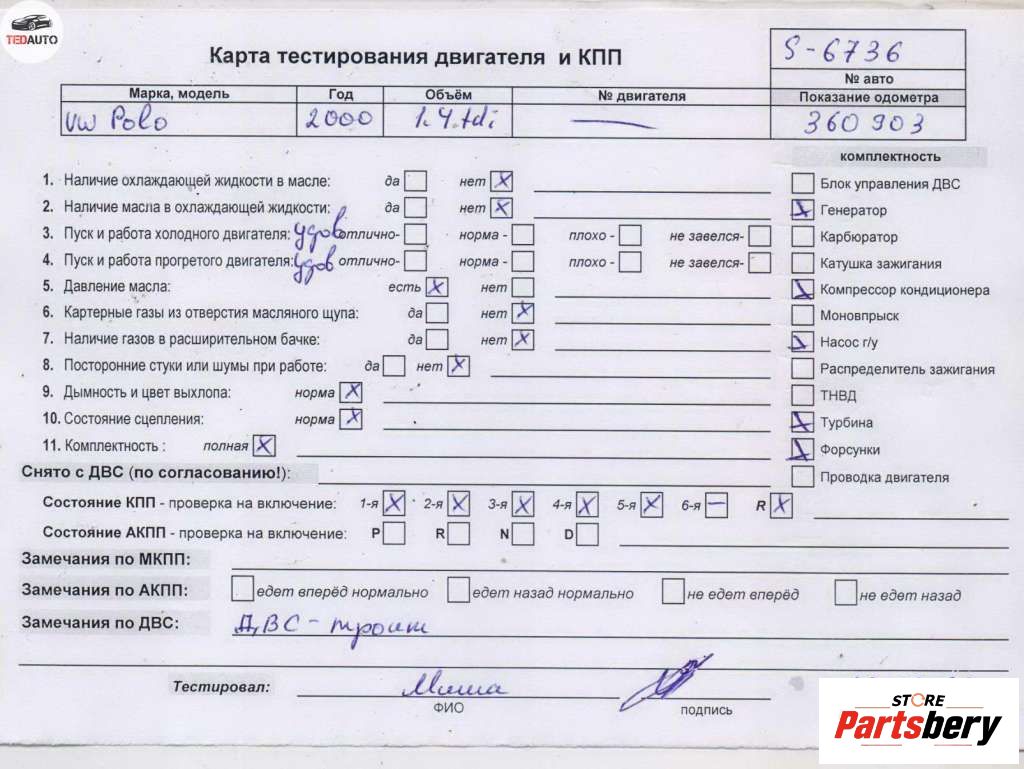 TEDAUTO
Карта тестирования двигателя и КПП
S-6736
№ авто
Марка, модель Год Объём № двигателя Показание одометра
VW Polo 2000 1.4 tdi — 360 903
комплектность
1. Наличие охлаждающей жидкости в масле: да нет X
Блок управления ДВС
2. Наличие масла в охлаждающей жидкости: да нет X
Генератор
3. Пуск и работа холодного двигателя: удов отлично- норма - плохо - не завелся-
Карбюратор
4. Пуск и работа прогретого двигателя: удов отлично- норма - плохо - не завелся-
Катушка зажигания
5. Давление масла: есть X нет
Компрессор кондиционера
6. Картерные газы из отверстия масляного щупа: да нет X
Моновпрыск
7. Наличие газов в расширительном бачке: да нет X
Насос г/у
8. Посторонние стуки или шумы при работе: да нет X
Распределитель зажигания
9. Дымность и цвет выхлопа: норма X
ТНВД
10. Состояние сцепления: норма X
Турбина
11. Комплектность : полная X
Форсунки
Снято с ДВС (по согласованию!):
Проводка двигателя
Состояние КПП - проверка на включение: 1-я X 2-я X 3-я X 4-я X 5-я X 6-я — R X
Состояние АКПП - проверка на включение: P R N D
Замечания по МКПП:
Замечания по АКПП: едет вперёд нормально едет назад нормально не едет вперёд не едет назад
Замечания по ДВС: ДВС - троит
Тестировал: Миша
ФИО подпись
STORE
Partsbery